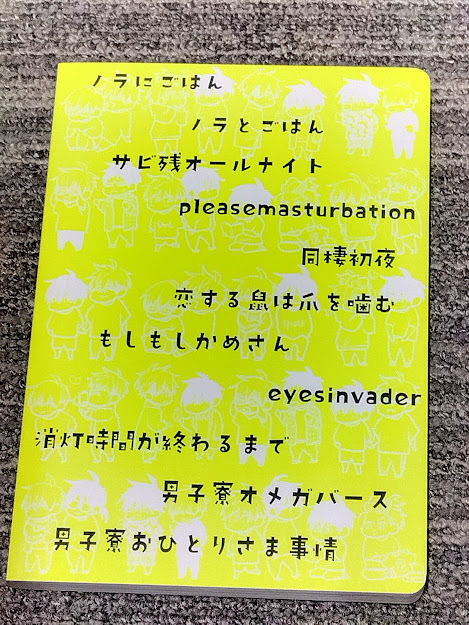 ノラにごはん
ノラとごはん
サビ残オールナイト
pleasemasturbation
同棲初夜
恋する鼠は爪を噛む
もしもしかめさん
eyesinvader
消灯時間が終わるまで
男子寮オメガバース
男子寮おひとりさま事情